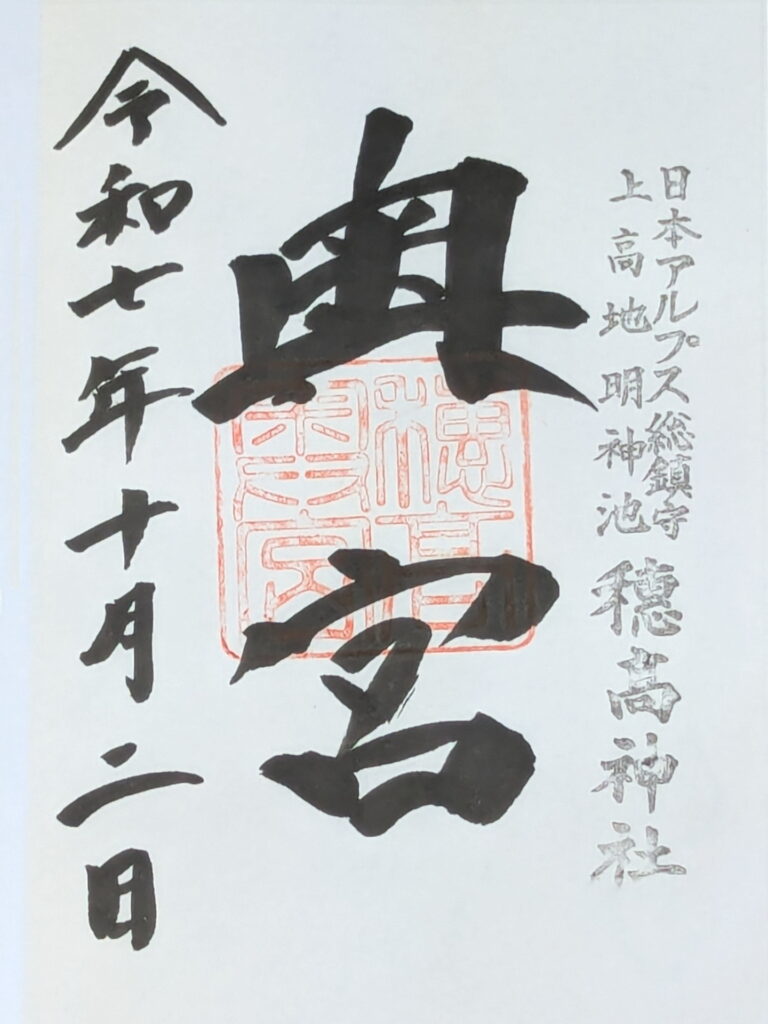 日本アルプス総鎮守
上高地明神池
穂高神社
奥宮
穂高奥宮
令和七年十月二日